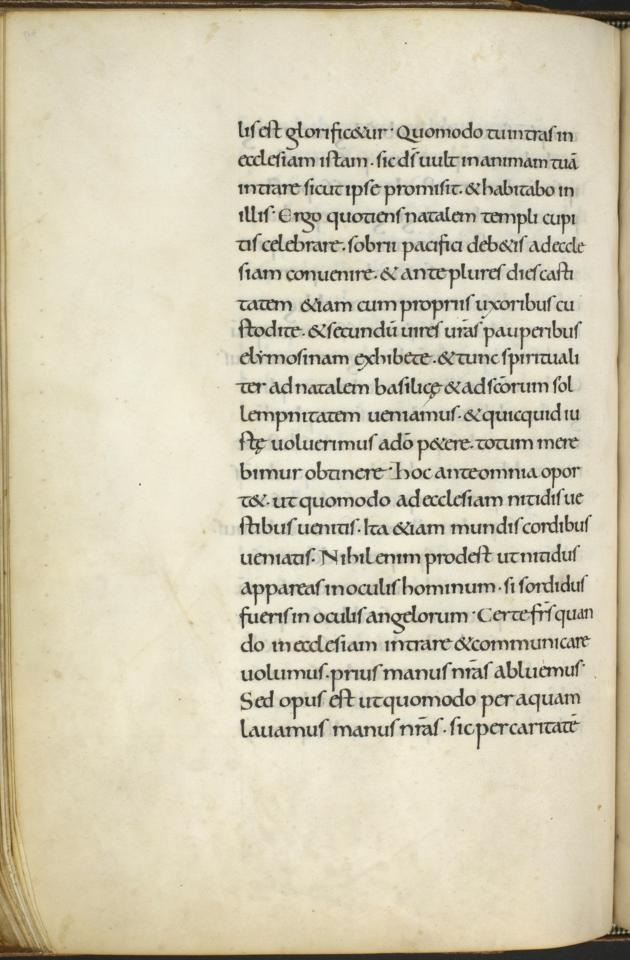 lis est glorific&ur · Quomodo tu intras in
ecclesiam istam · sic ds̄ uult in animam tuā
intrare sicut ipse promisit · & habitabo in
illis · Ergo quotiens natalem templi cupi
tis celebrare · sobrii pacifici deb&is ad eccle
siam conuenire · & ante plures dies casti
tatem &iam cum propriis uxoribus cu
stodite · & secundū uires urās pauperibus
elymosinam exhibete · & tunc spirituali
ter ad natalem basilicę & ad scōrum sol
lempnitatem ueniamus · & quicquid iu
stę uoluerimus a dō p&ere · totum mere
bimur obtinere · hoc ante omnia opor
t& · ut quomodo ad ecclesiam nitidis ue
stibus uenitis · Ita &iam mundis cordibus
ueniatis · Nihil enim prodest ut nitidus
appareas in oculis hominum · si sordidus
fueris in oculis angelorum · Certe frs̄ quan
do in ecclesiam intrare & communicare
uolumus · prius manus nrās abluemus ·
Sed opus est ut quomodo per aquam
lauamus manus nrās · sic per caritatē